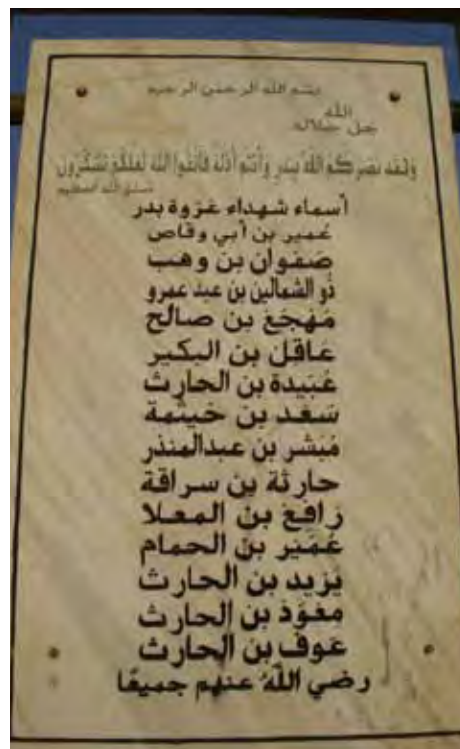 بسم الله الرحمن الرحيم
الله
جل جلاله
وَلَقَد نَصَرَكُمُ اللَّهُ بِبَدرٍ وَأَنتُم أَذِلَّةٌ فَاتَّقُوا اللهَ لَعَلَّكُم تَشكُرُون
صدق الله العظيم
أسماء شهداء غزوة بدر
عُمير بن أبي وقاص
صَفوان بن وهب
ذُو الشمالين بن عبد عمرو
مَهْجَعْ بن صالح
عَاقل بن البكير
عُبَيدة بن الحارث
سَعْد بن خيثمة
مُبَشر بن عبدالمنذر
حارثة بن سراقة
رَافِعْ بن المعلا
عُمَيْر بن الحمام
يَزيد بن الحارث
معَوّذ بن الحارث
عَوف بن الحارث
رضي اللَّهُ عنهم جميعًا